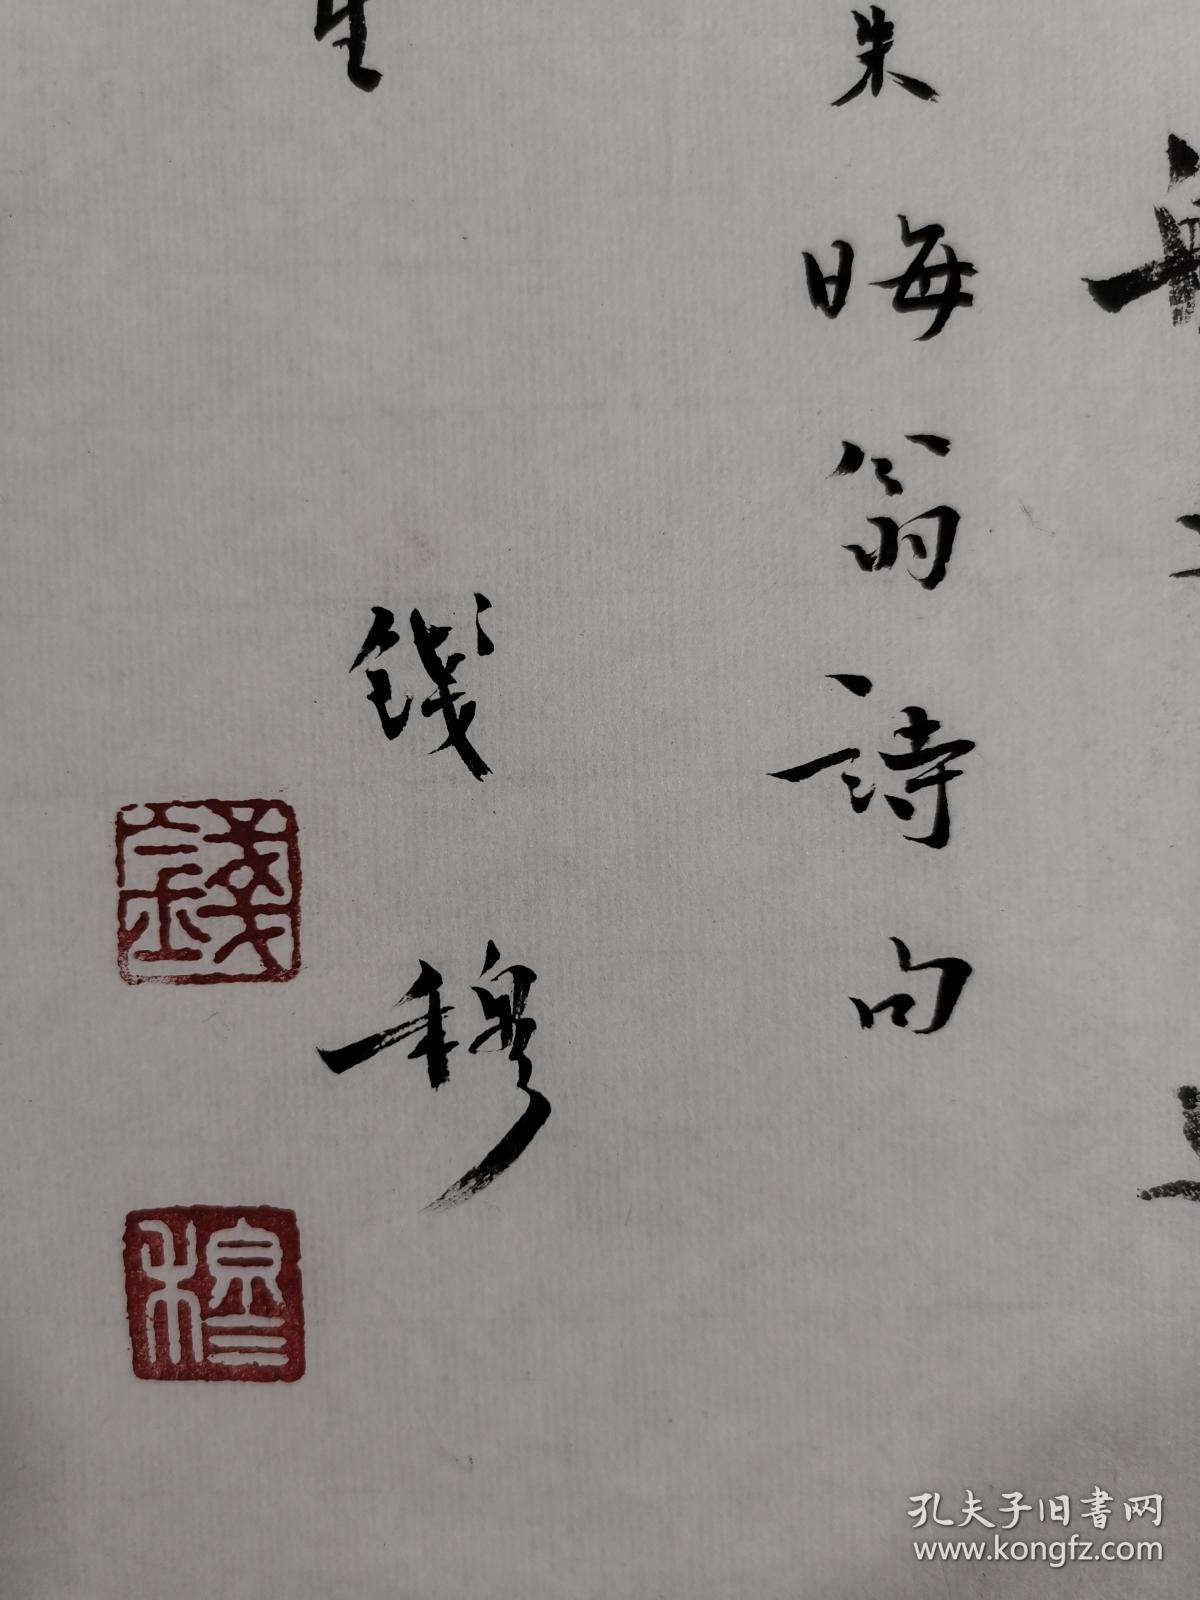 朱晦翁詩句
錢穆
錢
穆
孔夫子旧書网
www.kongfz.com